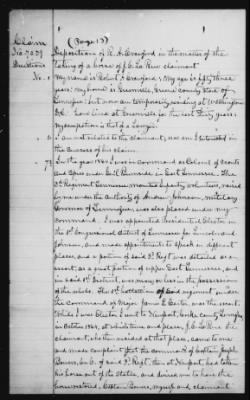 (Page 13)
Claim
No. 7027
Questions
Deposition of R. A. Crawford in the matter of the
taking of a horse of J. C. La Rue claimant
No. 1
My name is Robert A Crawford; My age is fifty three
years: My home is Greenville, Greene County State of
Tennessee; but now am temporarily residing at Washington
D.C. have lived at Greenville for the last thirty years:
My occupation is that of a Lawyer.
2
I am not related to the claimant, nor am I interested in
the success of his claim.
7
In the year 1864 I was in command as Colonel of Scouts
and Spies under Gen'l Burnside in East Tennessee. The
3d Regiment Tennessee mounted Infantry volunteers, raised
by me under the authority of Andrew Johnson, Military
Governor of Tennessee, was also placed under my
command. I was appointed Presidential Elector in
the 1st Congressional district of Tennessee for Lincoln and
Johnson, and made appointments to speak in different
places, and a portion of said 3d Regt was detailed as an
escort, as a great portion of upper East Tennessee, and
in said 1st District, was many or less in the possession
of the rebels. The 1st Battalion of said regiment under
the command of Major James E. Deakin, was the escort.
While I was Elector I went to Newport, Cocke County Tennessee,
in October 1864, at which time and place, J. C. La Rue the
claimant, who then resided at that place, came to me
and made complaint that the command of Captain Joseph
Bowers, Co. C. of said 3d Regt, then at Newport, had taken
his horse out of the stable, and desired me to have the
horse restored; Captain Bowers, myself and claimant